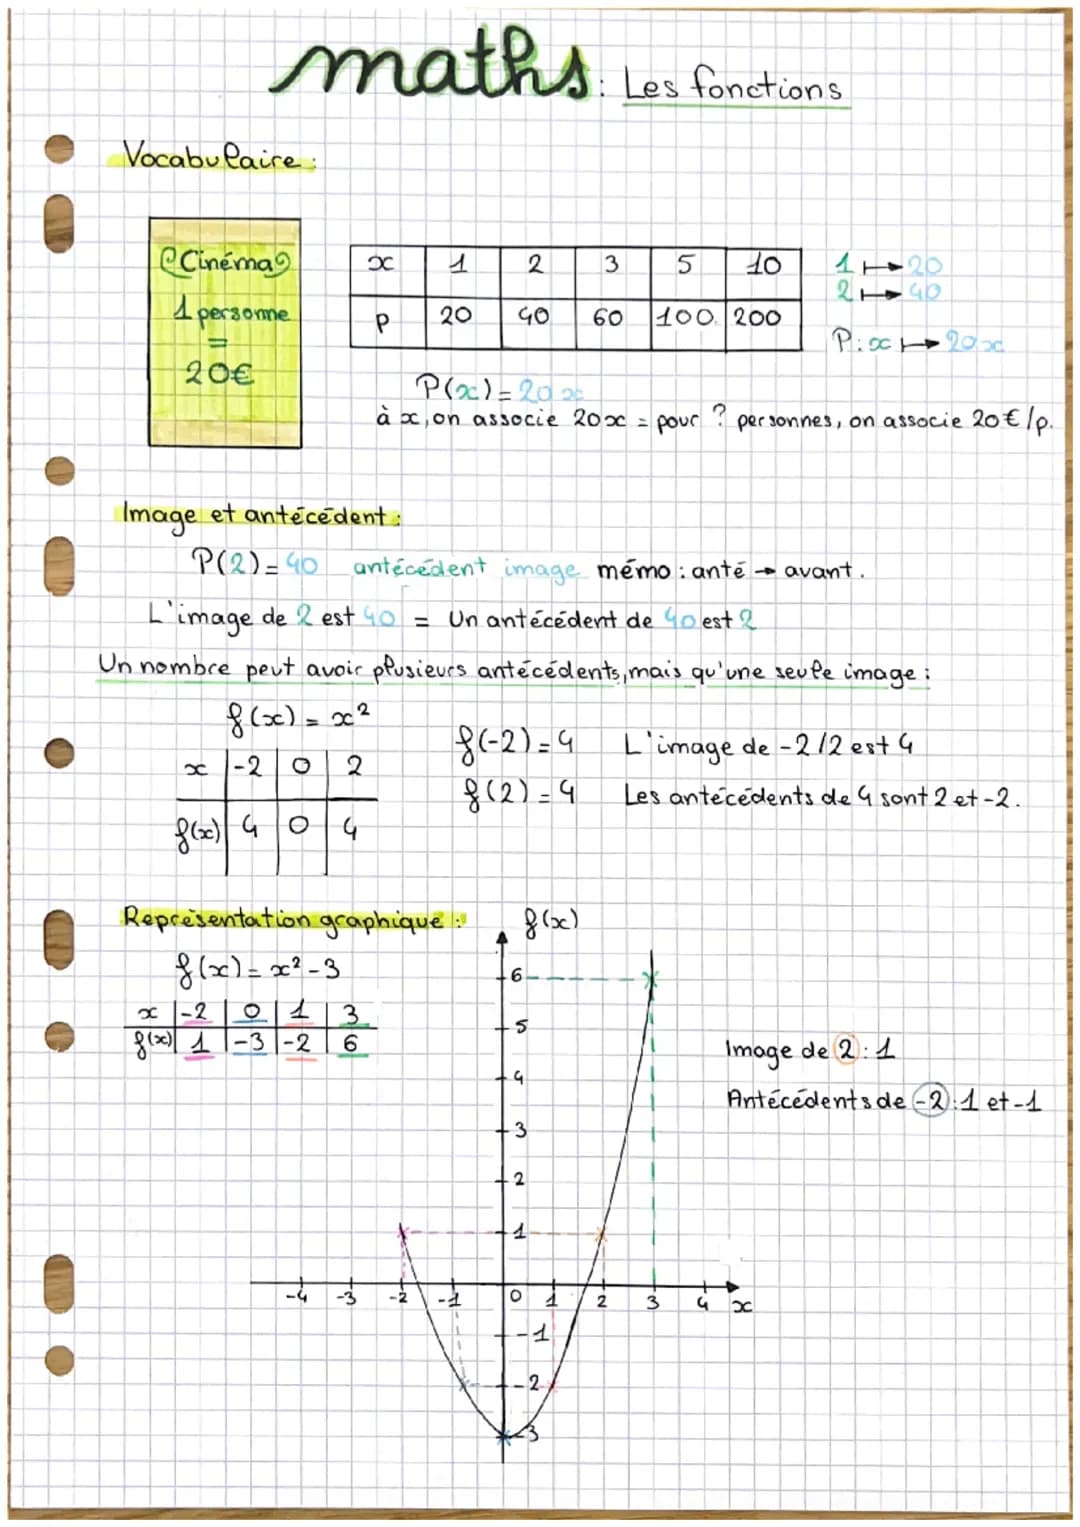 maths : Les fonctions
Vocabulaire :
Cinéma
1 personne
=
20€
x 1 2 3 5 10
P 20 40 60 100 200
1 ↦ 20
2 ↦ 40
P : x ↦ 20x
P(x) = 20x
à x, on associe 20x = pour ? personnes, on associe 20€/p.
Image et antécédent :
P(2) = 40 antécédent image mémo : anté → avant.
L'image de 2 est 40 = Un antécédent de 40 est 2
Un nombre peut avoir plusieurs antécédents, mais qu'une seule image :
f(x) = x²
x -2 0 2
f(x) 4 0 4
f(-2) = 4 L'image de -2/2 est 4
f(2) = 4 Les antécédents de 4 sont 2 et -2.
Représentation graphique :
f(x) = x² - 3
x -2 0 1 3
f(x) 1 -3 -2 6
f(x)
6
5
4
3
2
1
-4 -3 -2 -1 0 1 2 3 4 x
-1
-2
-3
Image de 2 : 1
Antécédents de -2 : 1 et -1